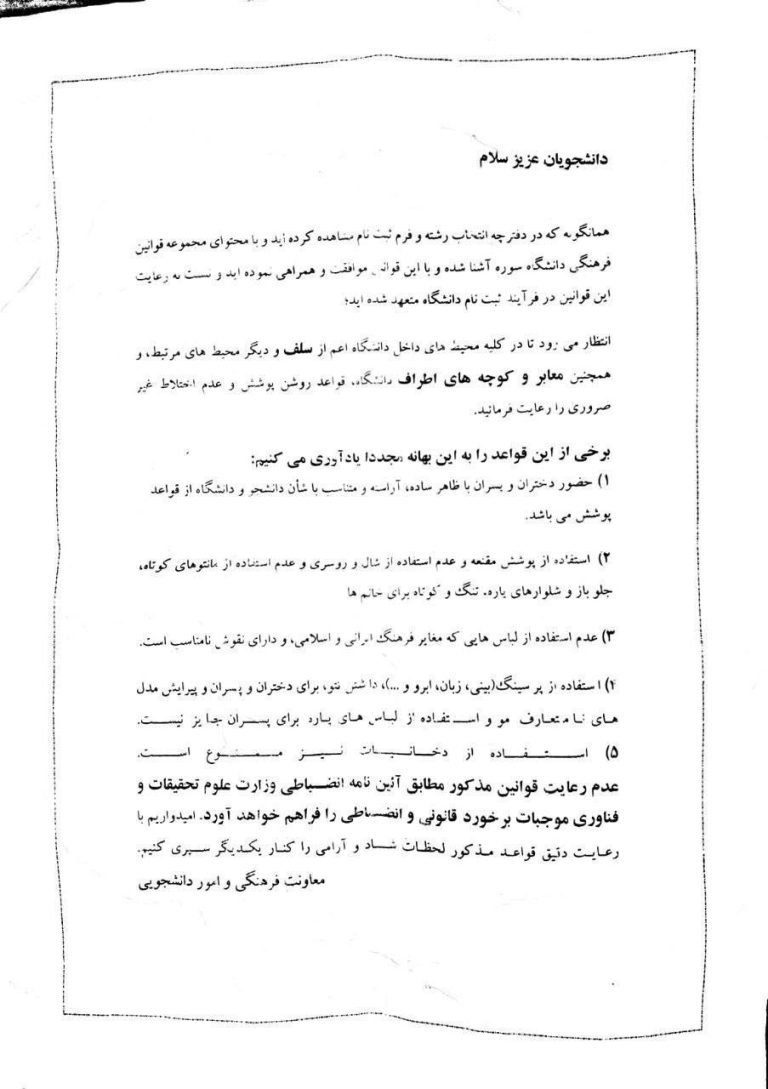 دانشجویان عزیز سلام
همانگونه که در دفترچه انتخاب رشته و فرم ثبت نام مشاهده کرده اید و با محتوای مجموعه قوانین
فرهنگی دانشگاه سوره آشنا شده و با این قوانین موافقت و همراهی نموده اید و نسبت به رعایت
این قوانین در فرآیند ثبت نام دانشگاه متعهد شده اید؛
انتظار می رود تا در کلیه محیط های داخل دانشگاه اعم از سلف و دیگر محیط های مرتبط، و
همچنین معابر و کوچه های اطراف دانشگاه، قواعد روشن پوشش و عدم اختلاط غیر
ضروری را رعایت فرمائید.
برخی از این قواعد را به این بهانه مجددا یادآوری می کنیم:
۱) حضور دختران و پسران با ظاهر ساده، آراسته و متناسب با شأن دانشجو و دانشگاه از قواعد
پوشش می باشد.
۲) استفاده از پوشش مقنعه و عدم استفاده از شال و روسری و عدم استفاده از مانتوهای کوتاه،
جلو باز و شلوارهای پاره، تنگ و کوتاه برای خانم ها
۳) عدم استفاده از لباس هایی که مغایر فرهنگ ایرانی و اسلامی، و دارای نقوش نامناسب است.
۴) استفاده از پرسینگ(بینی، زبان، ابرو و ...)، داشتن تتو، برای دختران و پسران و پیرایش مدل
های نامتعارف مو و استفاده از لباس های پاره برای پسران جایز نیست.
۵) استفاده از دخانیات نیز ممنوع است.
عدم رعایت قوانین مذکور مطابق آئین نامه انضباطی وزارت علوم تحقیقات و
فناوری موجبات برخورد قانونی و انضباطی را فراهم خواهد آورد. امیدواریم با
رعایت دقیق قواعد مذکور لحظات شاد و آرامی را کنار یکدیگر سپری کنیم.
معاونت فرهنگی و امور دانشجویی